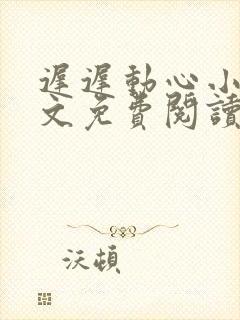 遲遲動心小
文免費閱讀
沃頓